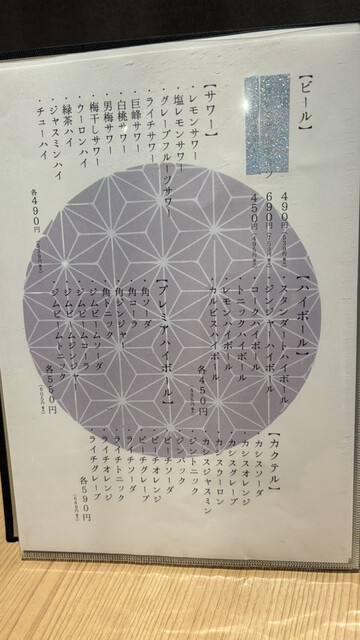 【ビール】
490円
690円
450円
【サワー】
・レモンサワー
・塩レモンサワー
・グレープフルーツサワー
・ライチサワー
・巨峰サワー
・白桃サワー
・男梅サワー
・梅干しサワー
・ウーロンハイ
・緑茶ハイ
・ジャスミンハイ
・チューハイ
各490円
【ハイボール】
・スタンダードハイボール
・ジンジャーハイボール
・コークハイボール
・トニックハイボール
・レモンハイボール
・カルピスハイボール
各450円
【プレミアハイボール】
・角ソーダ
・角コーラ
・角ジンジャー
・角トニック
・ジムビームソーダ
・ジムビームコーラ
・ジムビームジンジャー
・ジムビームトニック
各550円
【カクテル】
・カシスソーダ
・カシスオレンジ
・カシスグレープ
・カシスウーロン
・カシスジャスミン
・ジントニック
・ジンバック
・ピーチソーダ
・ピーチオレンジ
・ピーチグレープ
・ライチソーダ
・ライチトニック
・ライチオレンジ
・ライチグレープ
各590円